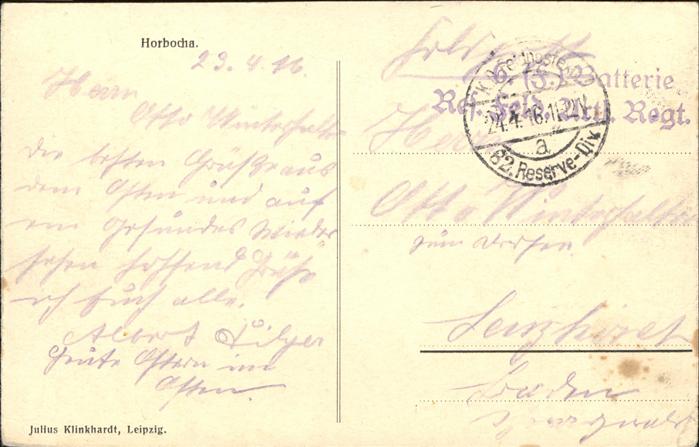 Horbocha.
23.4.16.
Herrn
Otto Winterhalter
die besten Grüße aus
dem Osten und auf
ein gesundes Wieder
sehen hoffend Grüße
ich Euch alle.
Albert Hilger
Heute Ostern im
Osten.
Julius Klinkhardt, Leipzig.
Feldpost
6. (F.) Batterie
Res. Feld. Artl. Regt.
K.D. Feldpostexp.
24.4.16. 1-2 N
a
82. Reserve-Div.
Herrn
Otto Winterhalter
zum
Lenzkirch
Baden